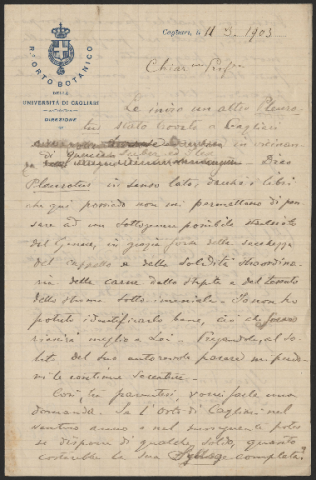 R.° ORTO BOTANICO
DELLA
UNIVERSITÀ DI CAGLIARI
DIREZIONE
Cagliari, li 11 3. 1903
Chiar.mo Prof.re
Le invio un altro Pleuro-
tus stato trovato a Cagliari
in vicinan-
za di
Dico
Pleurotus in senso lato, dacchè i libri
che qui possiedo non mi permettono di pen-
sare ad un Sottogenere possibile
del Genere, in grazia forse della secchezza
del cappello e della solidità straordina-
ria della carne dello stipite e del tessuto
dello strato sotto imeniale. Io non ho
potuto identificarlo bene, ciò che forse
riuscirà meglio a Lei. Pregandola, al so-
lito, del suo autorevole parere mi pren-
do le cautioni
Con tre parentesi, vorrei farle una
domanda. Se l'Orto di Cagliari nel
venturo anno o nel susseguente potes-
se disporre di qualche soldo, quanto
costerebbe la sua Sylloge completa?